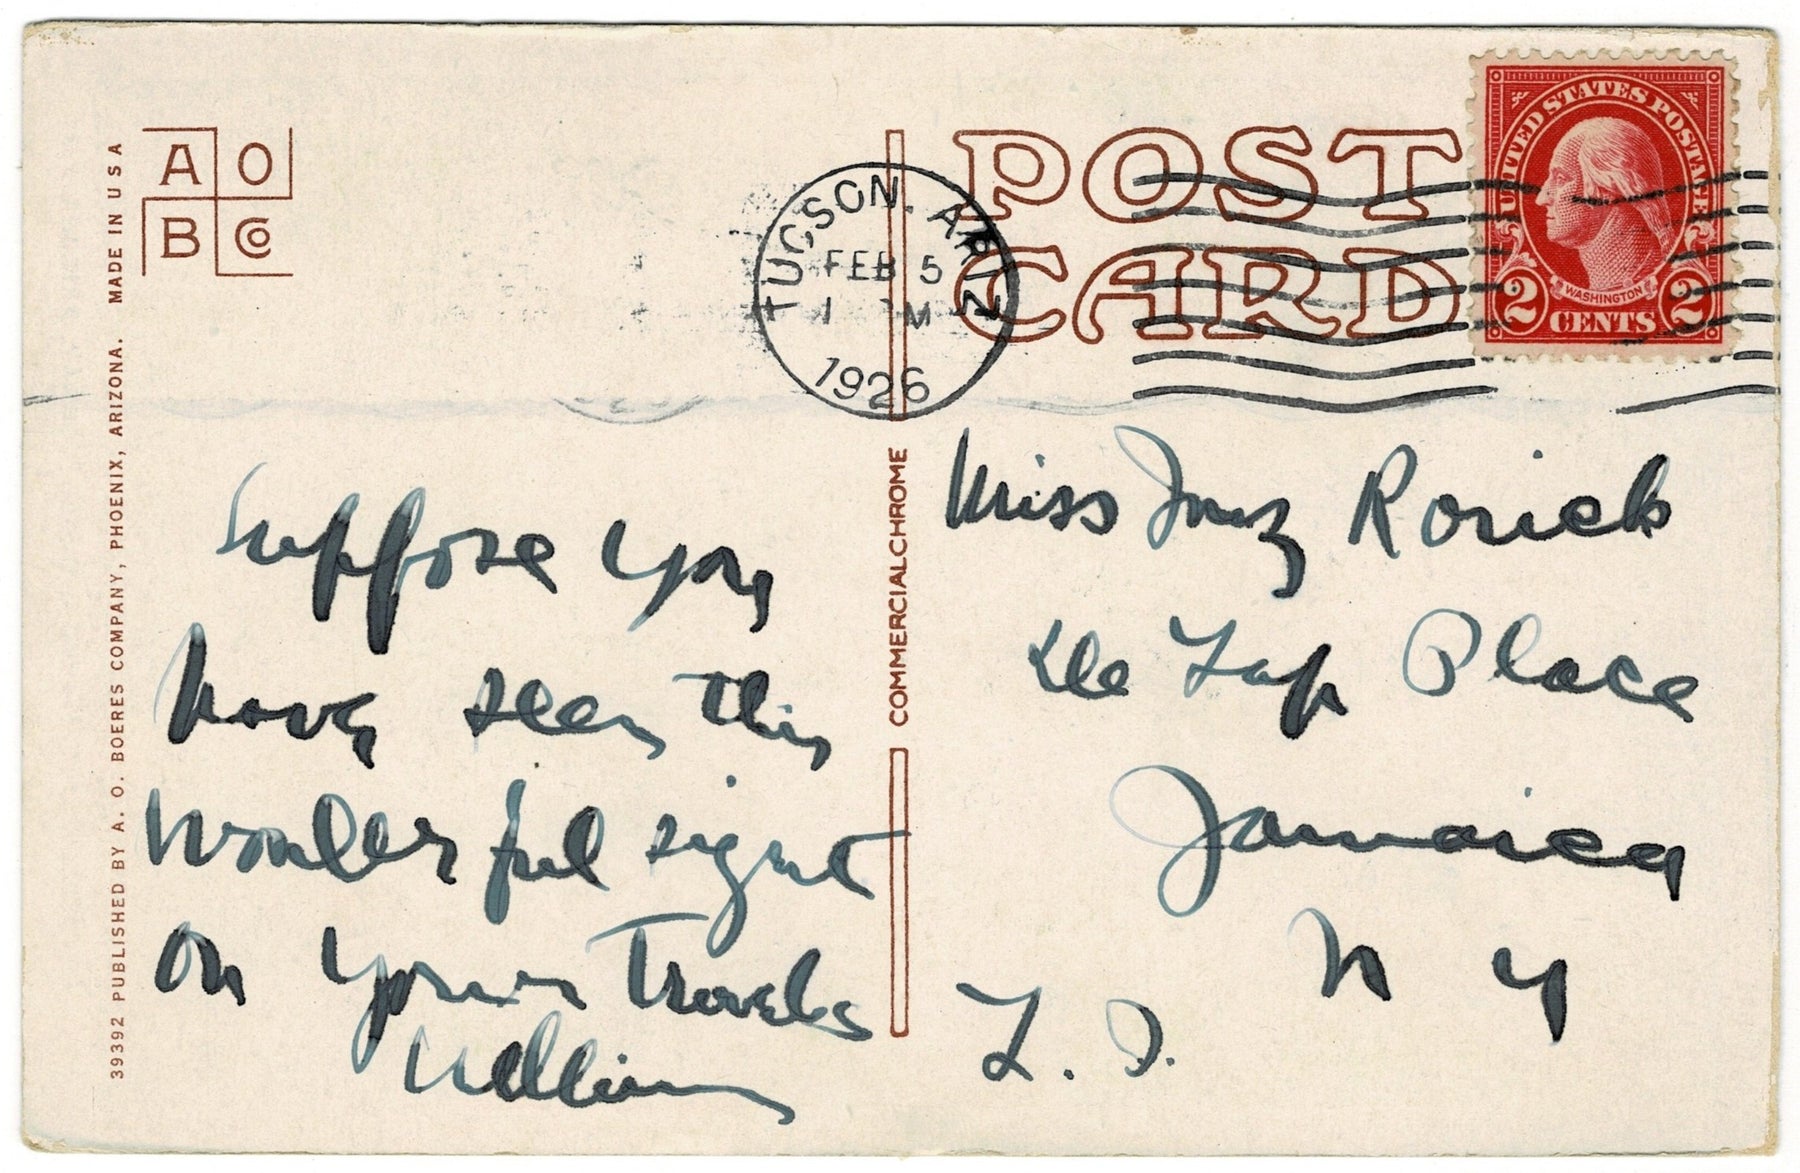 A O
B Co
39392 PUBLISHED BY A. O. BOERES COMPANY, PHOENIX, ARIZONA. MADE IN U S A
TUCSON, ARIZ
FEB 5
1 M
1926
POST
CARD
UNITED STATES POSTAGE
WASHINGTON
2 CENTS 2
COMMERCIALCHROME
Suppose you
have seen this
wonderful sight
on your Travels
William
Miss Rorick
Place
Jamaica
N Y
L. I.